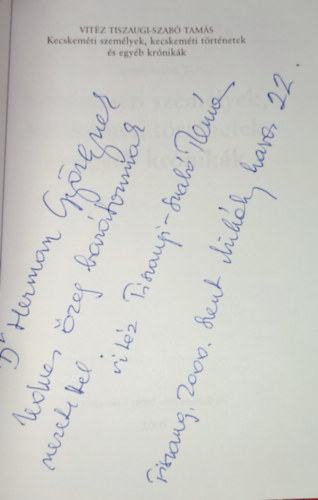 VITÉZ TISZAUGI-SZABÓ TAMÁS
Kecskeméti személyek, kecskeméti történetek
és egyéb krónikák
Dr Herman Györgynek
kedves öreg barátomnak
szeretettel
vitéz Tiszaugi-Szabó Tamás
Tiszaug, 2000. Szent Mihály hava 22.